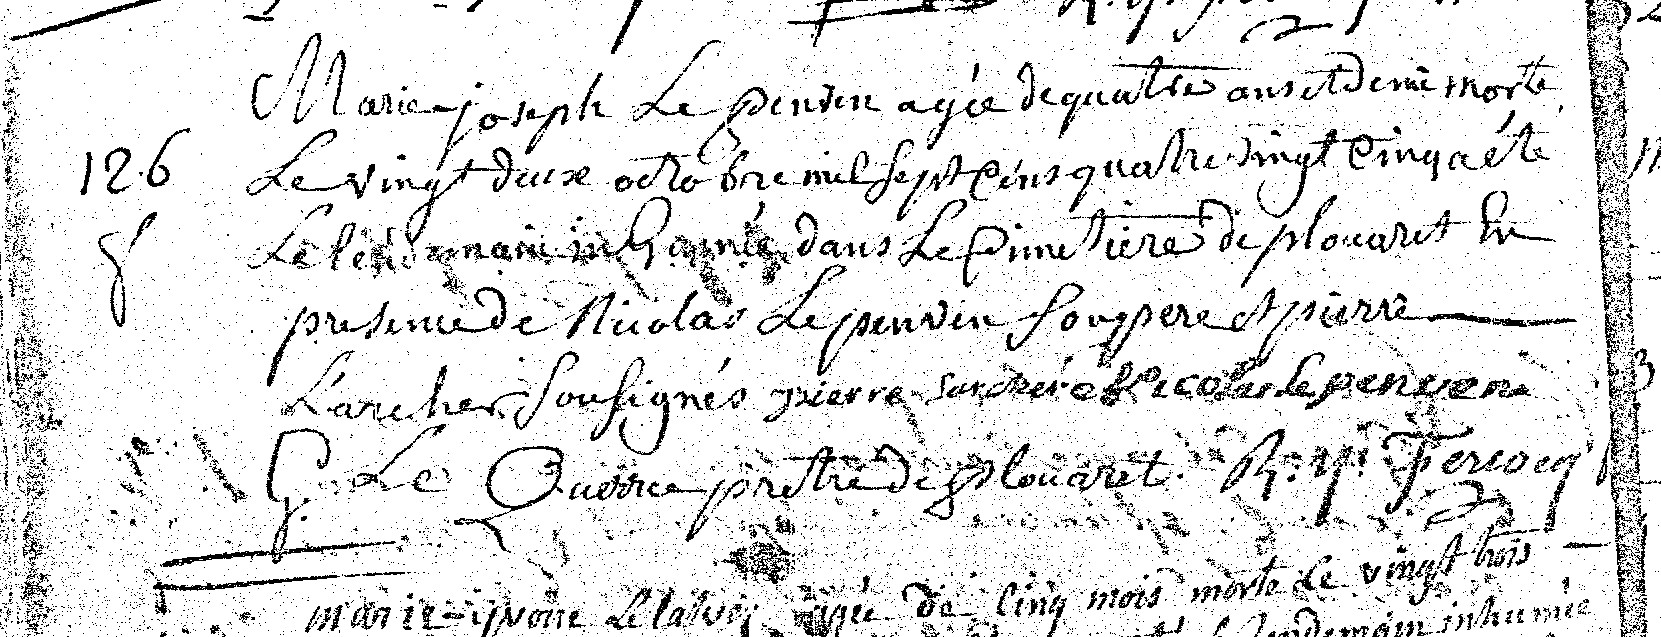 Marie joseph Le penven agée de quatre ans et demi morte
126 Le vingt deux octobre mil sept cens quatre vingt cinq a été
Le lendemain inhumée dans Le Cimetière de plouaret En
presence de Nicolas Le penven son pere et pierre
L'archer sousignés pierre Larcher Nicolas Le penven
G. Le Querre prêtre de plouaret. R. Y. Fercocq
marie-yvone Le agée de Cinq mois morte Le vingt trois
lendemain inhumée